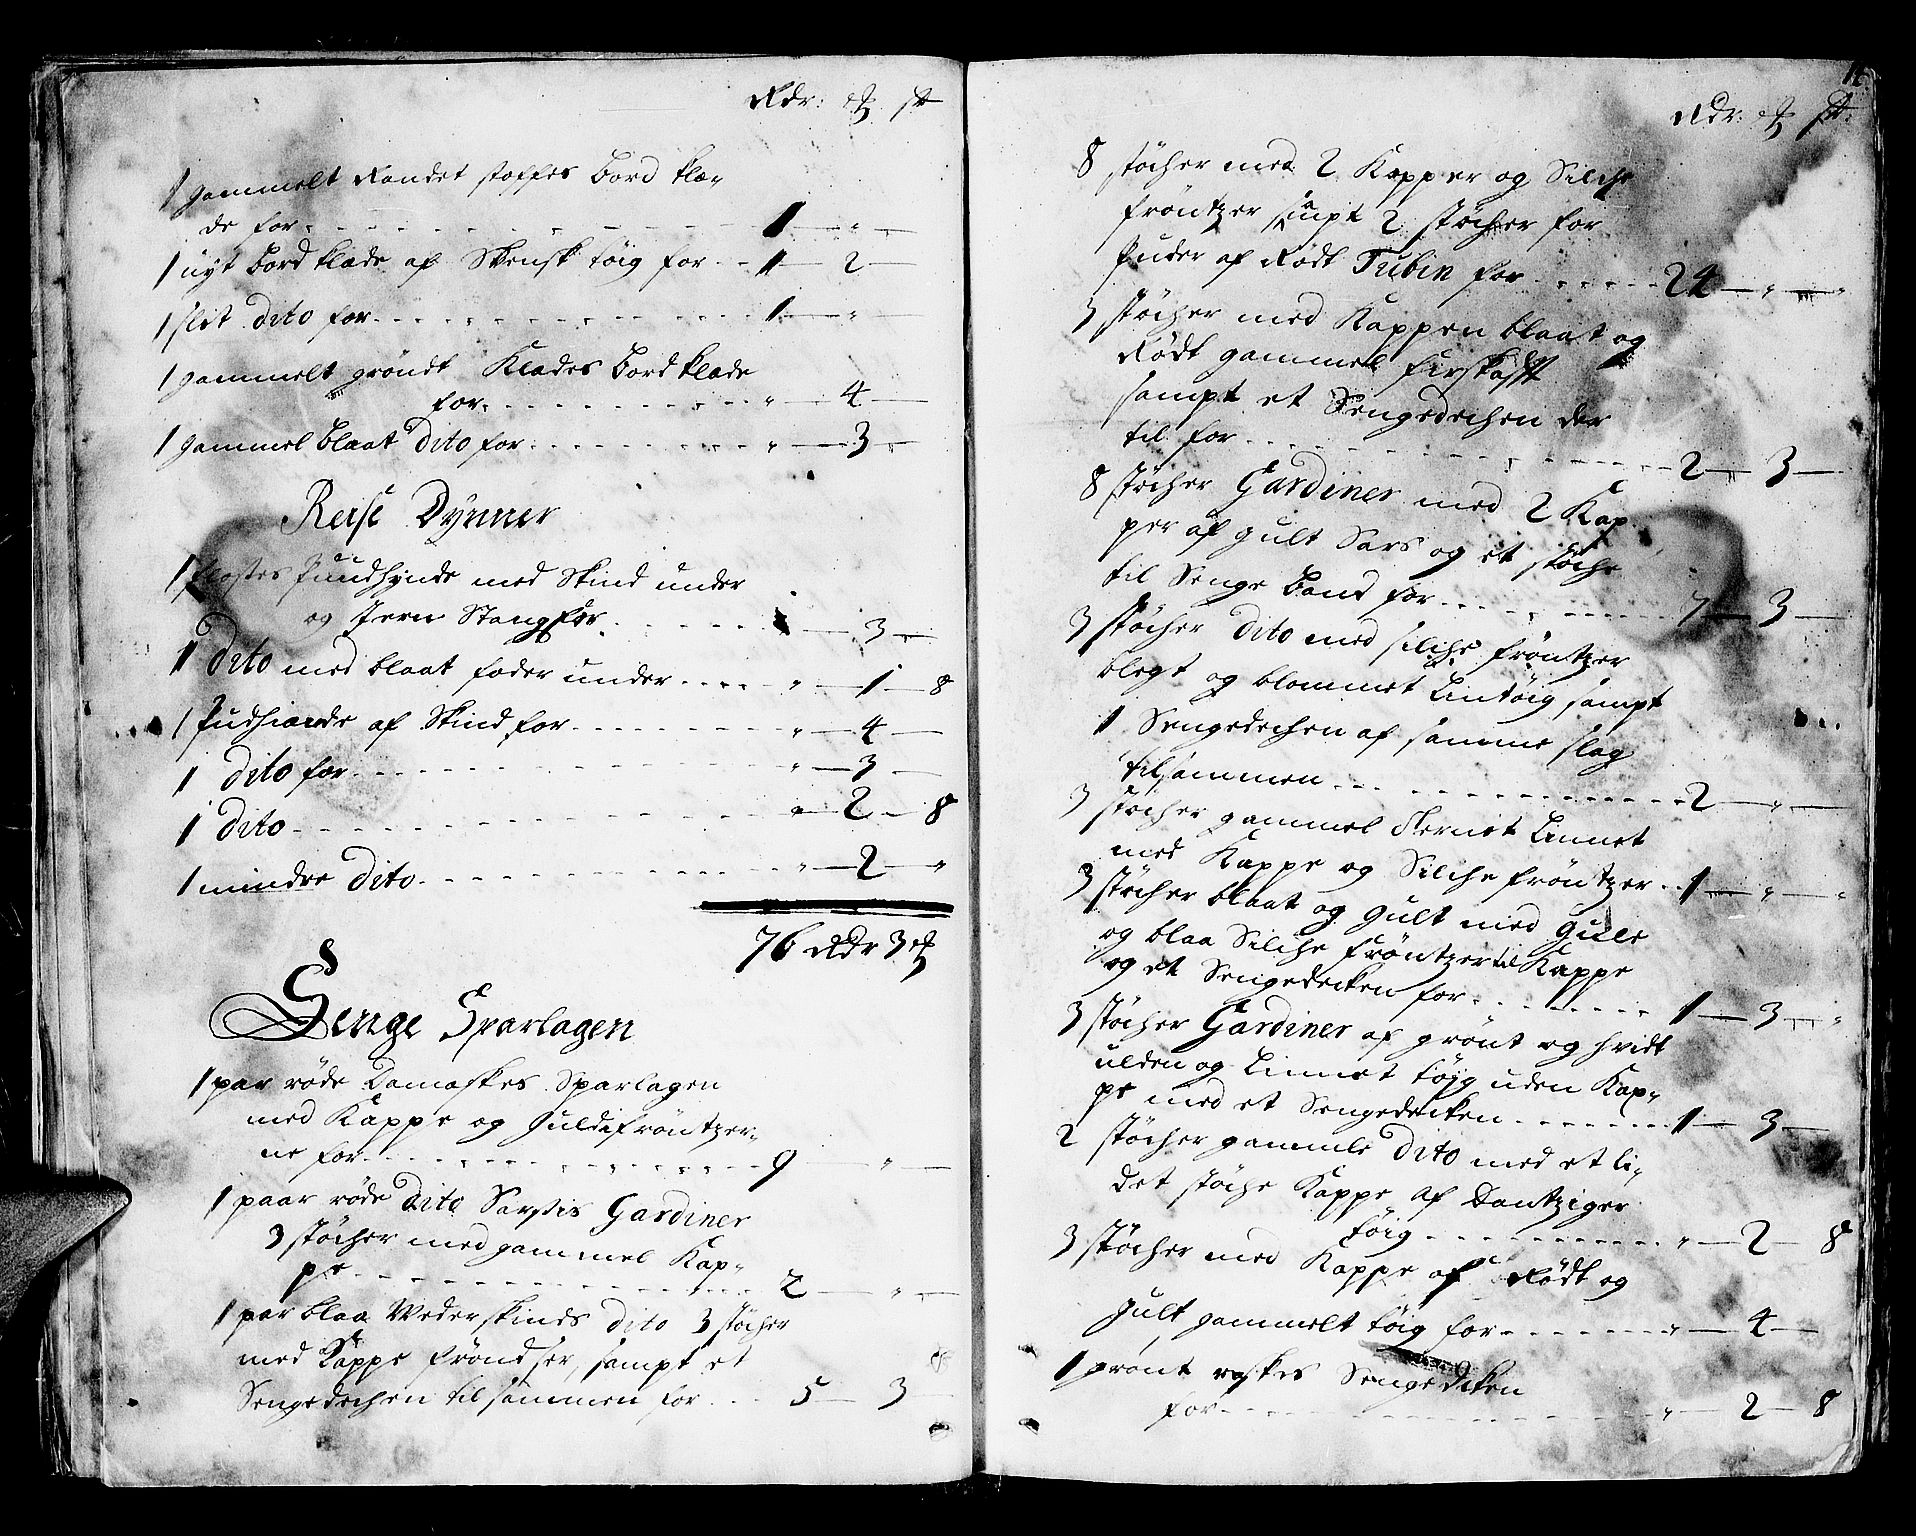 Rdr: ℳ st
1 gammelt Randet stoffes Bord klæ-
de for 1 - "
1 nyt Bord klæde af Skensk töig for 1 - 2 -
1 slet dito for 1 - "
1 gammelt gröndt Klædes Bord klæde
for " - 4 -
1 gammel blaat dito for " - 3 -
Reise Dynner
1 Puudhynde med Skind under
og Jern Stang for - 3 -
1 dito med blaat foder under " - 1 - 8
1 Pudhiønde af Skind for " - 4 -
1 dito for " - 3 -
1 dito " - 2 - 8
1 mindre dito " - 2 - "
76 Rdr 3 ℳ
Senge Sparlagen
1 par röde Damaskes Sparlagen
med Kappe og Guldfröntzer-
ne for 9 - "
1 paar röde dito Gardiner
3 støcher med gammel Kap-
pe 2 - "
1 par blaa Wederskinds dito 3 støcher
med Kappe fröndser, sampt et
Sengedechen tilsammen for 5 - 3 -
Rdr: ℳ st:
8 støcher med 2 Kapper og Silche
fröntzer sampt 2 støcher for
Puder af Rödt Tubin for 24 - " - "
3 støcher med Kappen blaat og
Rödt gammel
sampt et Sengedechen der
til for 2 - 3 -
8 støcher Gardiner med 2 Kap-
per af gult Sars og et støche
til Senge Band for 7 - 3 -
3 støcher dito med silche fröntzer
blegt og blommet Lintöig sampt
1 Sengedechen af samme slag
tilsammen 2 - " -
3 støcher gammel Ternet Linnet
med Kappe og Silche fröntzer 1 - " - "
3 støcher blaat og gult med gule
og blaa Silche fröntzer til Kappe
og et Sengedecken for 1 - 3 - "
3 støcher Gardiner af grönt og hvidt
ulden og Linnet töyg uden Kap-
pe med et Sengedecken 1 - 3 -
2 støcher gamle dito med et li-
det støche Kappe af Dantziger
töig " - 2 - 8
3 støcher med Kappe af Rödt og
gult gammelt töig for " - 4 -
1 grönt Sengedecken
for " - 2 - 8